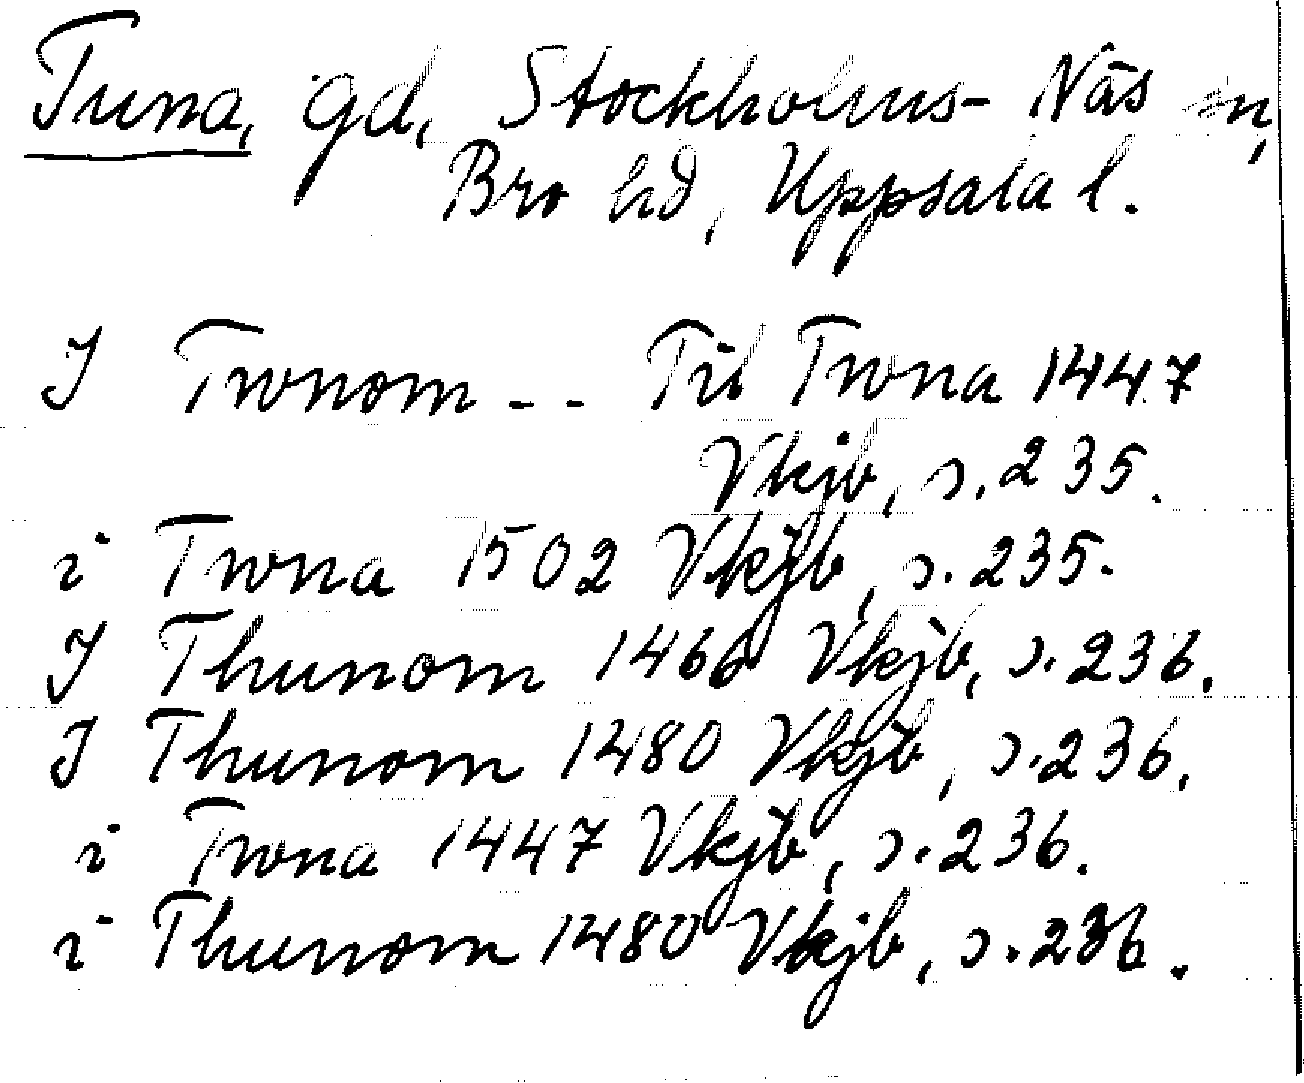 Tuna, gd, Stockholms-Näs sn,
Bro hd, Uppsala l.
I Twnom -- Til Twna 1447
Vkjb, s. 235.
i Twna 1502 Vkjb, s. 235.
I Thunom 1466 Vkjb, s. 236.
I Thunom 1480 Vkjb, s. 236.
i Twna 1447 Vkjb, s. 236.
i Thunom 1480 Vkjb, s. 236.